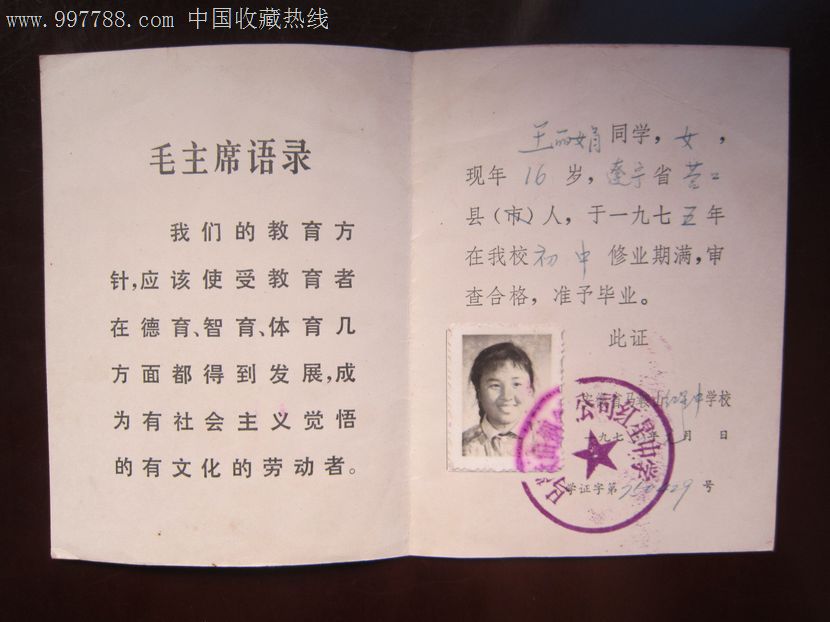 www.997788.com 中国收藏热线
毛主席语录
我们的教育方
针,应该使受教育者
在德育、智育、体育几
方面都得到发展,成
为有社会主义觉悟
的有文化的劳动者。
王丽娟同学,女,
现年16岁,辽宁省营口
县(市)人,于一九七五年
在我校初中修业期满,审
查合格,准予毕业。
此证
红星中学校
一九七 年 月 日
学证字第 号
公司红星中学